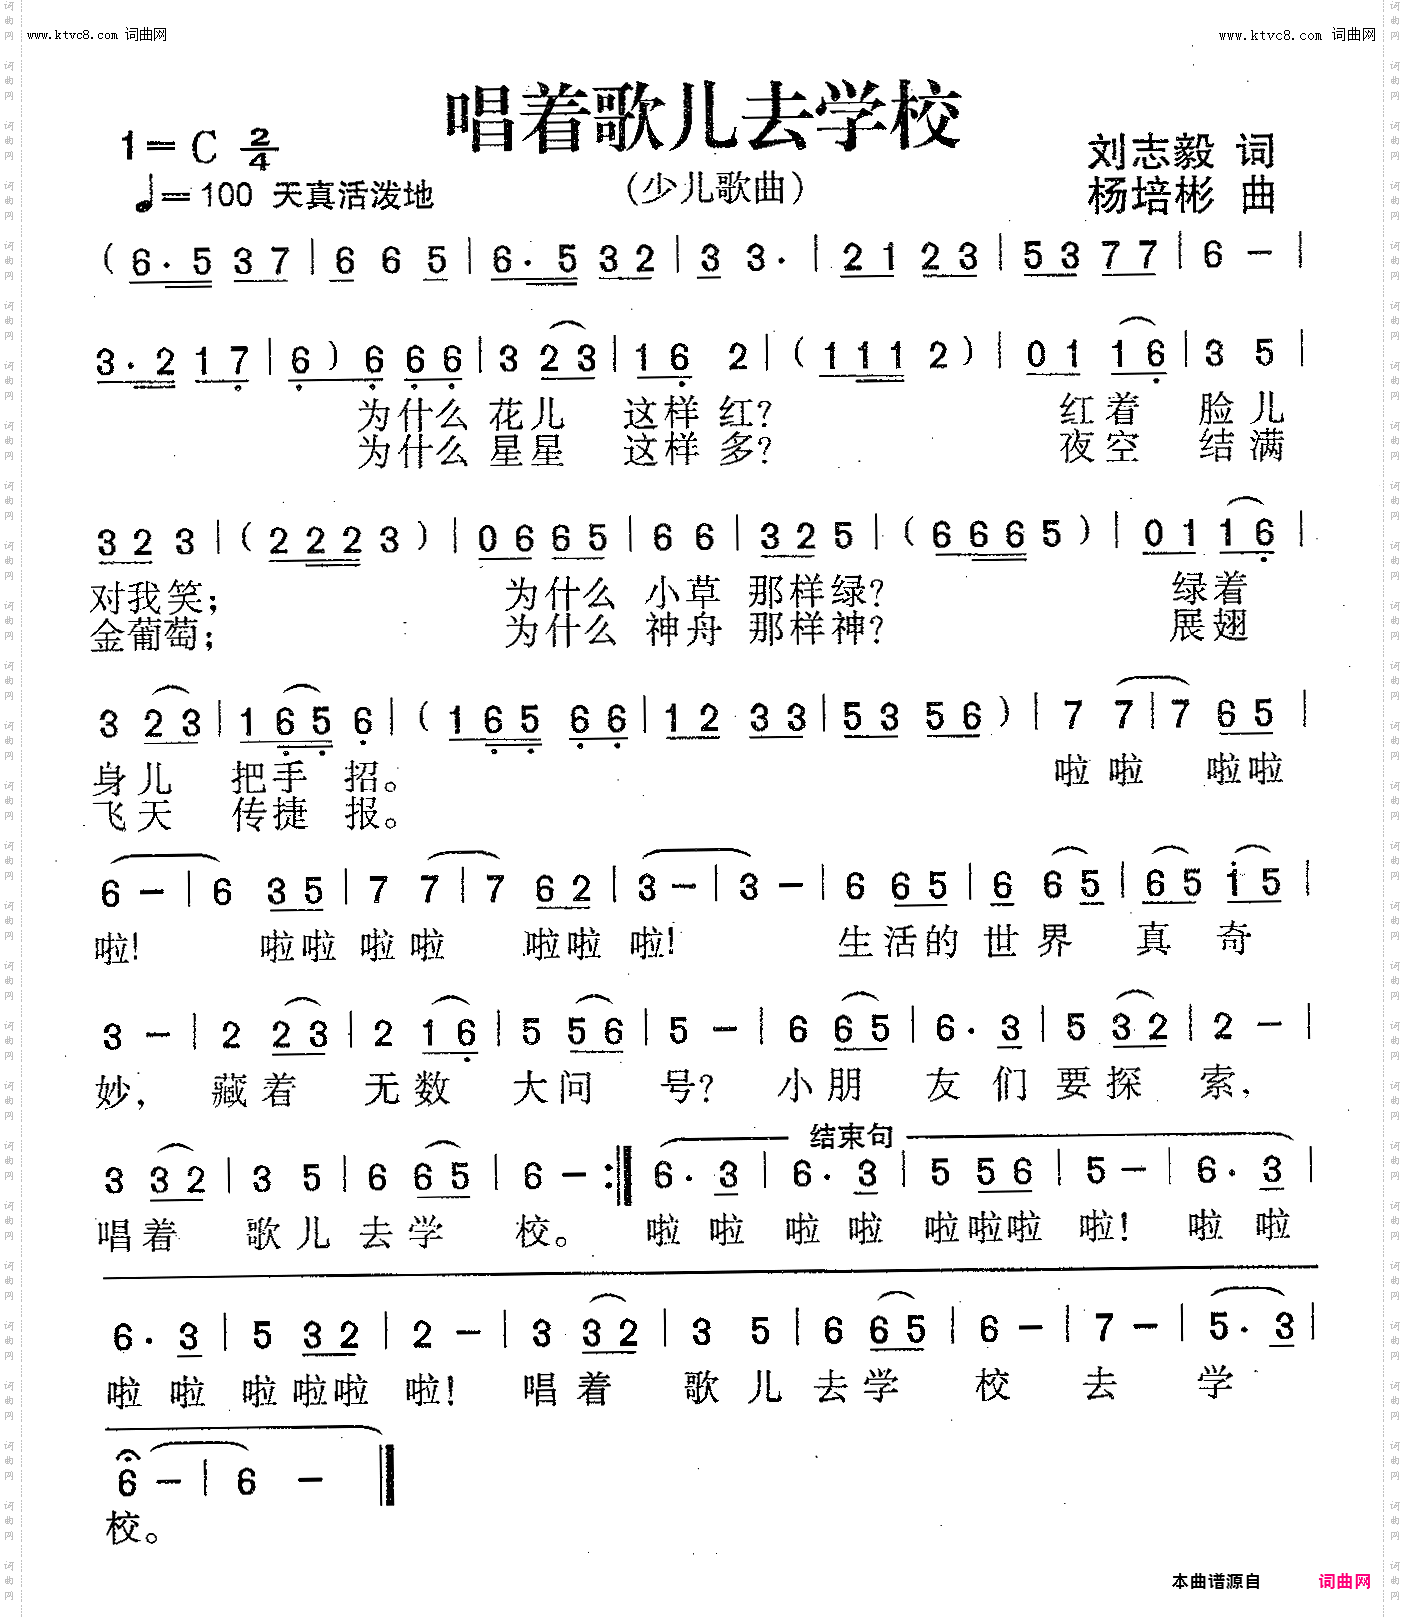 www.ktvc8.com 词曲网
www.ktvc8.com 词曲网
唱着歌儿去学校
1=C 2/4
♩=100 天真活泼地
(少儿歌曲)
刘志毅 词
杨培彬 曲
( 6· 5 3 7 | 6 6 5 | 6· 5 3 2 | 3 3· | 2 1 2 3 | 5 3 7 7 | 6 - |
3· 2 1 7 | 6 ) 6 6 6 | 3 2 3 | 1 6 2 | ( 1 1 1 2 ) | 0 1 1 6 | 3 5 |
为什么 花儿 这样 红? 红着 脸儿
为什么 星星 这样 多? 夜空 结满
3 2 3 | ( 2 2 2 3 ) | 0 6 6 5 | 6 6 | 3 2 5 | ( 6 6 6 5 ) | 0 1 1 6 |
对我笑; 为什么 小草 那样绿? 绿着
金葡萄; 为什么 神舟 那样神? 展翅
3 2 3 | 1 6 5 6 | ( 1 6 5 6 6 | 1 2 3 3 | 5 3 5 6 ) | 7 7 | 7 6 5 |
身儿 把手 招。 啦啦 啦啦
飞天 传捷 报。
6 - | 6 3 5 | 7 7 | 7 6 2 | 3 - | 3 - | 6 6 5 | 6 6 5 | 6 5 i 5 |
啦! 啦啦 啦啦 啦啦 啦! 生活的 世界 真 奇
3 - | 2 2 3 | 2 1 6 | 5 5 6 | 5 - | 6 6 5 | 6· 3 | 5 3 2 | 2 - |
妙, 藏着 无数 大问 号? 小朋 友们 要探 索,
结束句
3 3 2 | 3 5 | 6 6 5 | 6 - :‖ 6· 3 | 6· 3 | 5 5 6 | 5 - | 6· 3 |
唱着 歌儿 去学 校。 啦啦 啦啦 啦啦啦 啦! 啦啦
6· 3 | 5 3 2 | 2 - | 3 3 2 | 3 5 | 6 6 5 | 6 - | 7 - | 5· 3 |
啦啦 啦啦啦 啦! 唱着 歌儿 去学 校 去 学
6 - | 6 - ‖
校。
本曲谱源自 词曲网